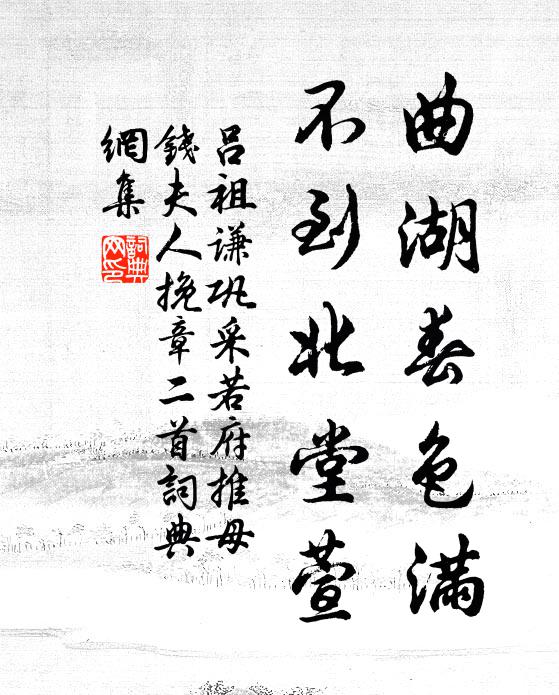 曲湖春色滿
不到北堂萱
呂祖謙巩采若府推母
錢夫人挽章二首詞典
網集
詞典網印